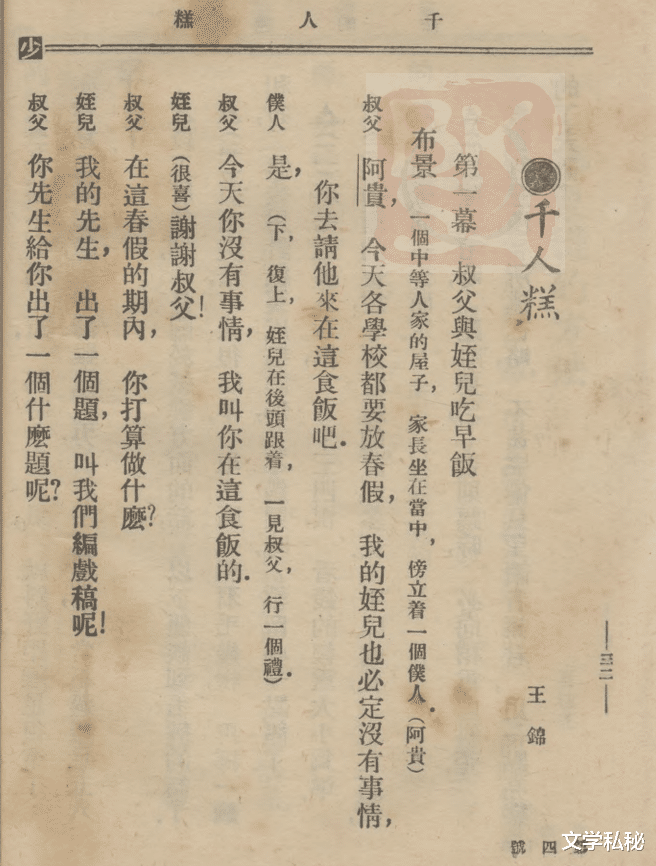 千人糕
少
千人糕
王錦
第一幕 叔父與姪兒吃早飯
布景 一個中等人家的屋子，家長坐在當中，傍立着一個僕人．(阿貴)
叔父 阿貴，今天各學校都要放春假，我的姪兒也必定沒有事情，
你去請他來在這食飯吧．
僕人 是，(下，復上，姪兒在後頭跟着，一見叔父，行一個禮．)
叔父 今天你沒有事情，我叫你在這食飯的．
姪兒 (很喜)謝謝叔父！
叔父 在這春假的期內，你打算做什麽？
姪兒 我的先生，出了一個題，叫我們編戲稿呢！
叔父 你先生給你出了一個什麽題呢？
三二
四號
BK
文学私秘